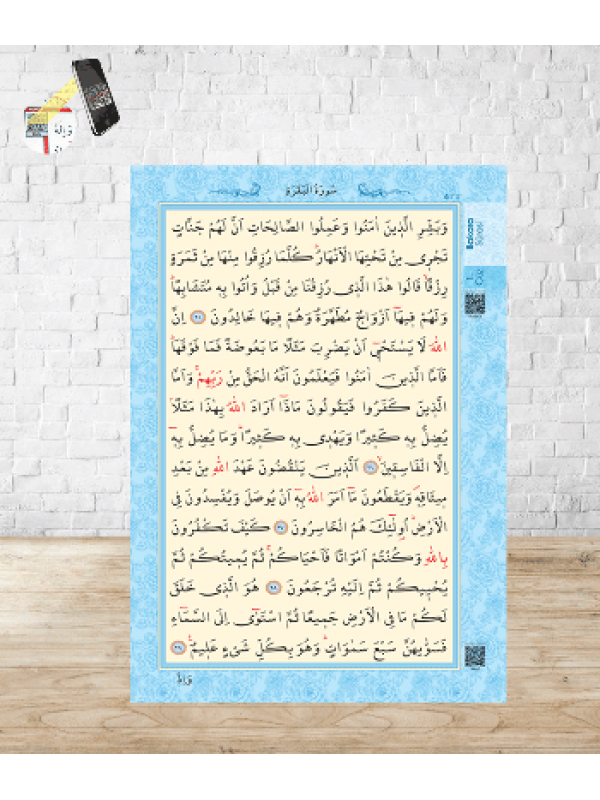 سُورَةُ الْبَقَرَةِ
وَبَشِّرِ الَّذِينَ اٰمَنُوا وَعَمِلُوا الصَّالِحَاتِ اَنَّ لَهُمْ جَنَّاتٍ
تَجْرِى مِنْ تَحْتِهَا الْاَنْهَارُۜ كُلَّمَا رُزِقُوا مِنْهَا مِنْ ثَمَرَةٍ
رِزْقًاۙ قَالُوا هٰذَا الَّذِى رُزِقْنَا مِنْ قَبْلُ وَاُتُوا بِهِ مُتَشَابِهًاۜ
وَلَهُمْ فِيهَٓا اَزْوَاجٌ مُطَهَّرَةٌ وَهُمْ فِيهَا خَالِدُونَ ﴿٢٥﴾ اِنَّ
اللّٰهَ لَا يَسْتَحْيِٓ اَنْ يَضْرِبَ مَثَلًا مَا بَعُوضَةً فَمَا فَوْقَهَاۜ
فَاَمَّا الَّذِينَ اٰمَنُوا فَيَعْلَمُونَ اَنَّهُ الْحَقُّ مِنْ رَبِّهِمْۚ وَاَمَّا
الَّذِينَ كَفَرُوا فَيَقُولُونَ مَاذَٓا اَرَادَ اللّٰهُ بِهٰذَا مَثَلًاۢ
يُضِلُّ بِهِ كَثِيرًا وَيَهْدِى بِهِ كَثِيرًاۜ وَمَا يُضِلُّ بِهِٓ
اِلَّا الْفَاسِقِينَۙ ﴿٢٦﴾ اَلَّذِينَ يَنْقُضُونَ عَهْدَ اللّٰهِ مِنْ بَعْدِ
مِيثَاقِهِۖ وَيَقْطَعُونَ مَٓا اَمَرَ اللّٰهُ بِهِٓ اَنْ يُوصَلَ وَيُفْسِدُونَ فِى
الْاَرْضِۜ اُو۬لٰٓئِكَ هُمُ الْخَاسِرُونَ ﴿٢٧﴾ كَيْفَ تَكْفُرُونَ
بِاللّٰهِ وَكُنْتُمْ اَمْوَاتًا فَاَحْيَاكُمْۚ ثُمَّ يُمِيتُكُمْ ثُمَّ
يُحْيِيكُمْ ثُمَّ اِلَيْهِ تُرْجَعُونَ ﴿٢٨﴾ هُوَ الَّذِى خَلَقَ
لَكُمْ مَا فِى الْاَرْضِ جَمِيعًا ثُمَّ اسْتَوٰٓى اِلَى السَّمَٓاءِ
فَسَوّٰيهُنَّ سَبْعَ سَمٰوَاتٍۜ وَهُوَ بِكُلِّ شَىْءٍ عَلِيمٌ۟ ﴿٢٩﴾
Bakara
Sûresi